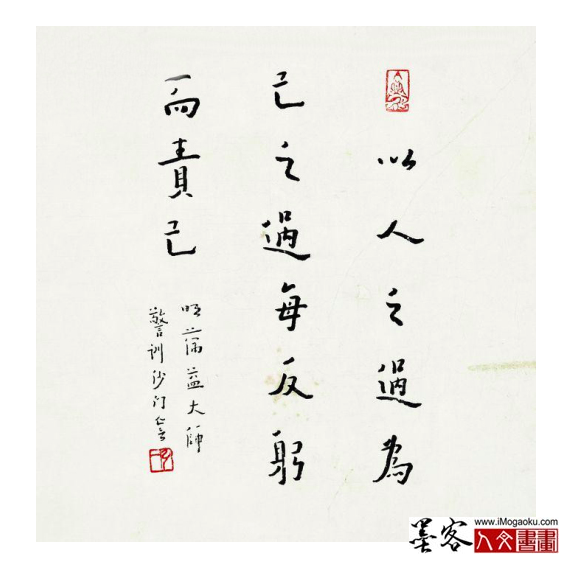 以人之過為
己之過每反躬
而責己
明蕅益大師
警訓沙门亡言
墨客
www.iMogaoku.com
人文書畫